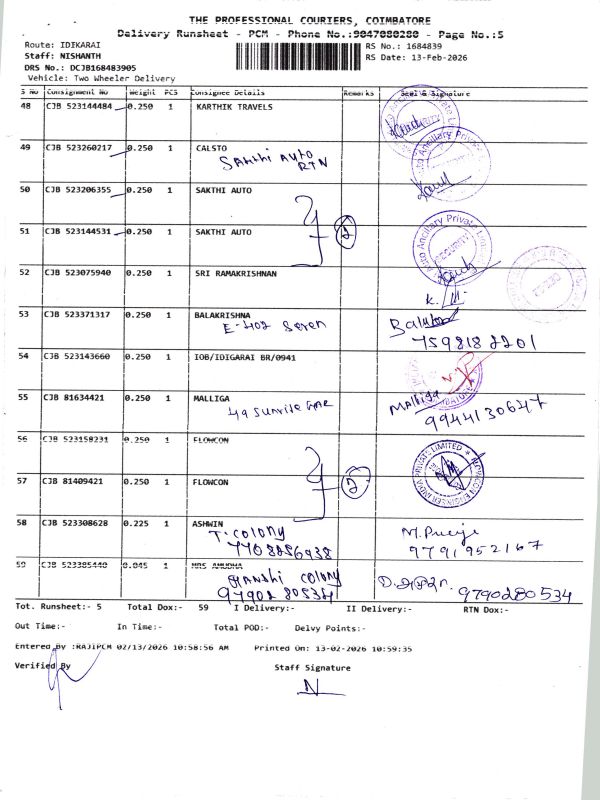 THE PROFESSIONAL COURIERS, COIMBATORE
Delivery Runsheet - PCM - Phone No.:9047080280 - Page No.:5
Route: IDIKARAI
RS No.: 1684839
Staff: NISHANTH
RS Date: 13-Feb-2026
DRS No.: DCJB168483905
Vehicle: Two Wheeler Delivery
S No Consignment No Weight PCS Consignee Details Remarks Seal & Signature
48 CJB 523144484 0.250 1 KARTHIK TRAVELS
49 CJB 523260217 0.250 1 CALSTO
Sakthi Auto
RTN
50 CJB 523206355 0.250 1 SAKTHI AUTO
51 CJB 523144531 0.250 1 SAKTHI AUTO
52 CJB 523075940 0.250 1 SRI RAMAKRISHNAN
53 CJB 523371317 0.250 1 BALAKRISHNA
E-402 Seven
7598188201
54 CJB 523143660 0.250 1 IOB/IDIGARAI BR/0941
55 CJB 81634421 0.250 1 MALLIGA
Malliga
9944130647
56 CJB 523158231 0.250 1 FLOWCON
57 CJB 81409421 0.250 1 FLOWCON
2
58 CJB 523308628 0.225 1 ASHWIN
T. Colony
7708286938
9791952167
59 CJB 523385440 0.045 1 MRS ANUDHA
Colony
9790280534
9790280534
Tot. Runsheet:- 5 Total Dox:- 59 I Delivery:- II Delivery:- RTN Dox:-
Out Time:- In Time:- Total POD:- Delvy Points:-
Entered By :RAJIPCM 02/13/2026 10:58:56 AM Printed On: 13-02-2026 10:59:35
Verified By Staff Signature
N